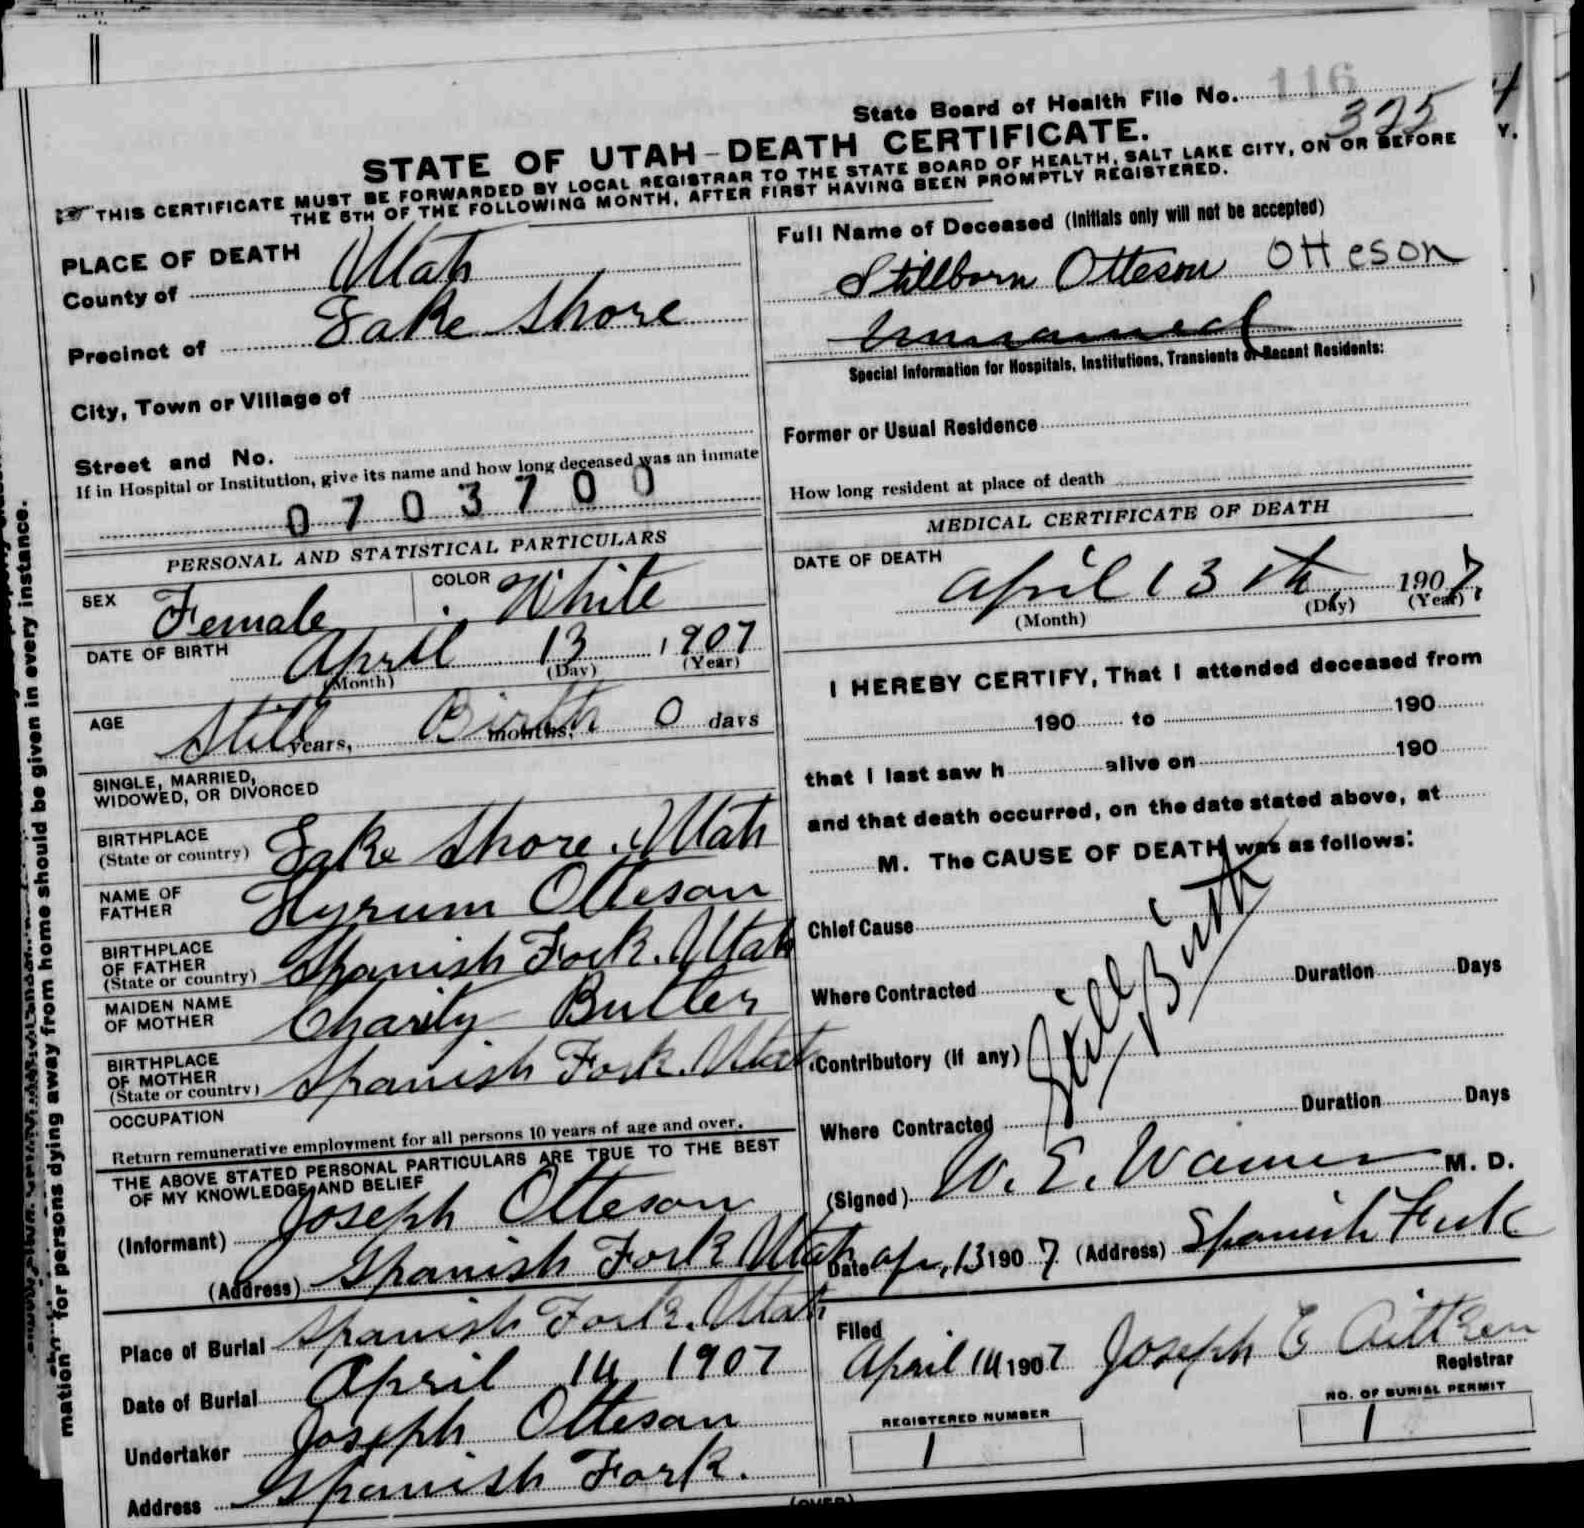 State Board of Health File No. 116
375
STATE OF UTAH-DEATH CERTIFICATE.
THIS CERTIFICATE MUST BE FORWARDED BY LOCAL REGISTRAR TO THE STATE BOARD OF HEALTH, SALT LAKE CITY, ON OR BEFORE
THE 5TH OF THE FOLLOWING MONTH, AFTER FIRST HAVING BEEN PROMPTLY REGISTERED.
PLACE OF DEATH
County of Utah
Precinct of Lake Shore
City, Town or Village of
Street and No.
If in Hospital or Institution, give its name and how long deceased was an inmate
0703700
PERSONAL AND STATISTICAL PARTICULARS
SEX Female COLOR White
DATE OF BIRTH April 13 1907
(Month) (Day) (Year)
AGE Still years, Birth months, 0 days
SINGLE, MARRIED,
WIDOWED, OR DIVORCED
BIRTHPLACE
(State or country) Lake Shore, Utah
NAME OF
FATHER Hyrum Otteson
BIRTHPLACE
OF FATHER
(State or country) Spanish Fork. Utah
MAIDEN NAME
OF MOTHER Charity Butler
BIRTHPLACE
OF MOTHER
(State or country) Spanish Fork. Utah
OCCUPATION
Return remunerative employment for all persons 10 years of age and over.
THE ABOVE STATED PERSONAL PARTICULARS ARE TRUE TO THE BEST
OF MY KNOWLEDGE AND BELIEF
(Informant) Joseph Otteson
(Address) Spanish Fork Utah
Place of Burial Spanish Fork. Utah
Date of Burial April 14 1907
Undertaker Joseph Otteson
Address Spanish Fork.
Full Name of Deceased (Initials only will not be accepted)
Stillborn Otteson Otteson
Unnamed
Special Information for Hospitals, Institutions, Transients or Recent Residents:
Former or Usual Residence
How long resident at place of death
MEDICAL CERTIFICATE OF DEATH
DATE OF DEATH
April 13th 1907.
(Month) (Day) (Year)
I HEREBY CERTIFY, That I attended deceased from
190 to 190
that I last saw h alive on 190
and that death occurred, on the date stated above, at
M. The CAUSE OF DEATH was as follows:
Chief Cause
Still Birth
Where Contracted Duration Days
Contributory (If any)
Where Contracted Duration Days
(Signed) W. E. Warner M. D.
Date Apr. 13 1907 (Address) Spanish Fork
Filed
April 14 1907 Joseph E Aitken
Registrar
REGISTERED NUMBER
1
NO. OF BURIAL PERMIT
1
(OVER)
mation for persons dying away from home should be given in every instance.
Y.